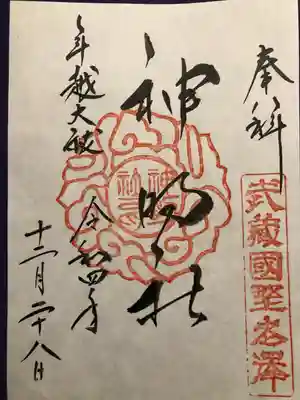 奉拝
武蔵國野老澤
神明社
年越大祓
令和四年
十二月二十八日